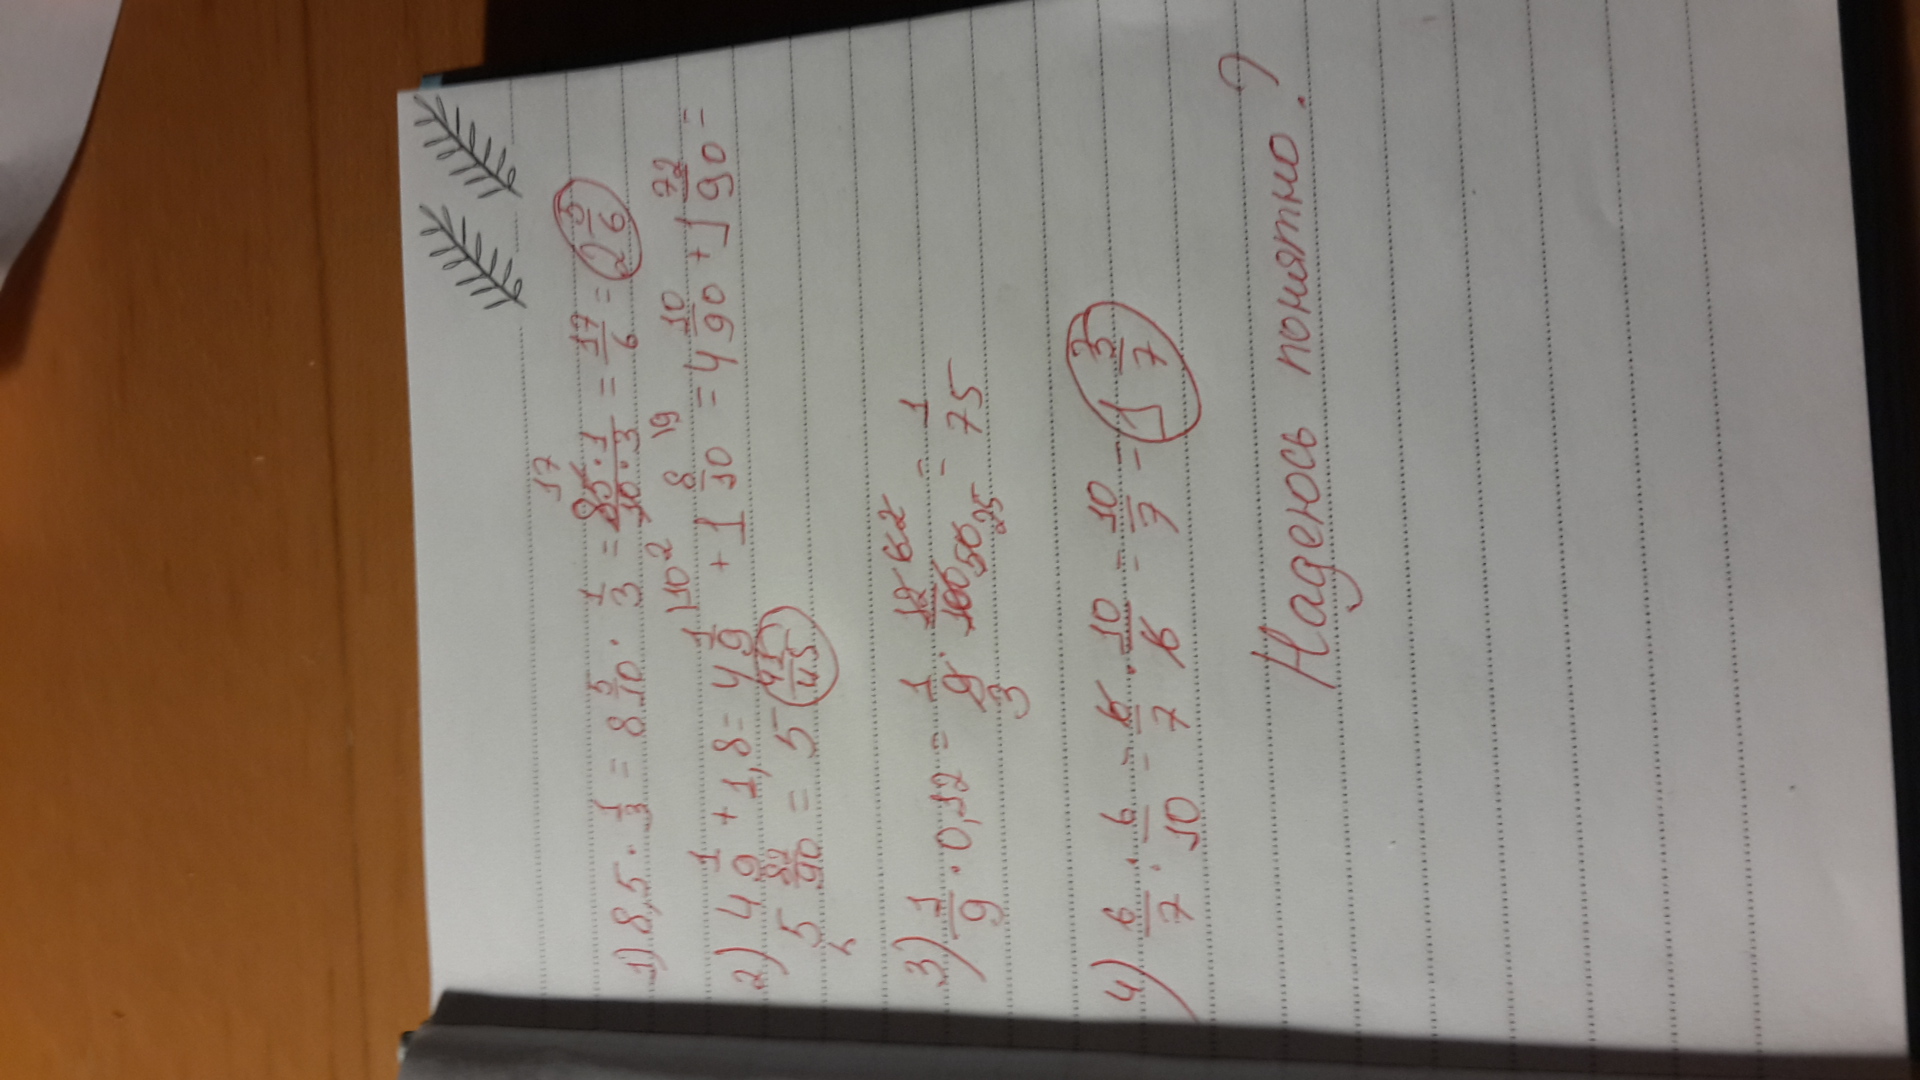 1) 8,5 · 1/3 = 8 5/10 · 1/3 = 85 · 1/10 · 3 = 17/6 = 2 5/6
2) 4 1/9 + 1,8 = 4 1/9 + 1 8/10 = 4 10/90 + 1 72/90 =
5 82/90 = 5 41/45
3) 1/9 · 0,12 = 1/9 · 12/100 = 1/75
4) 6/7 : 6/10 = 6/7 · 10/6 = 10/7 = 1 3/7
Надеюсь понятно?